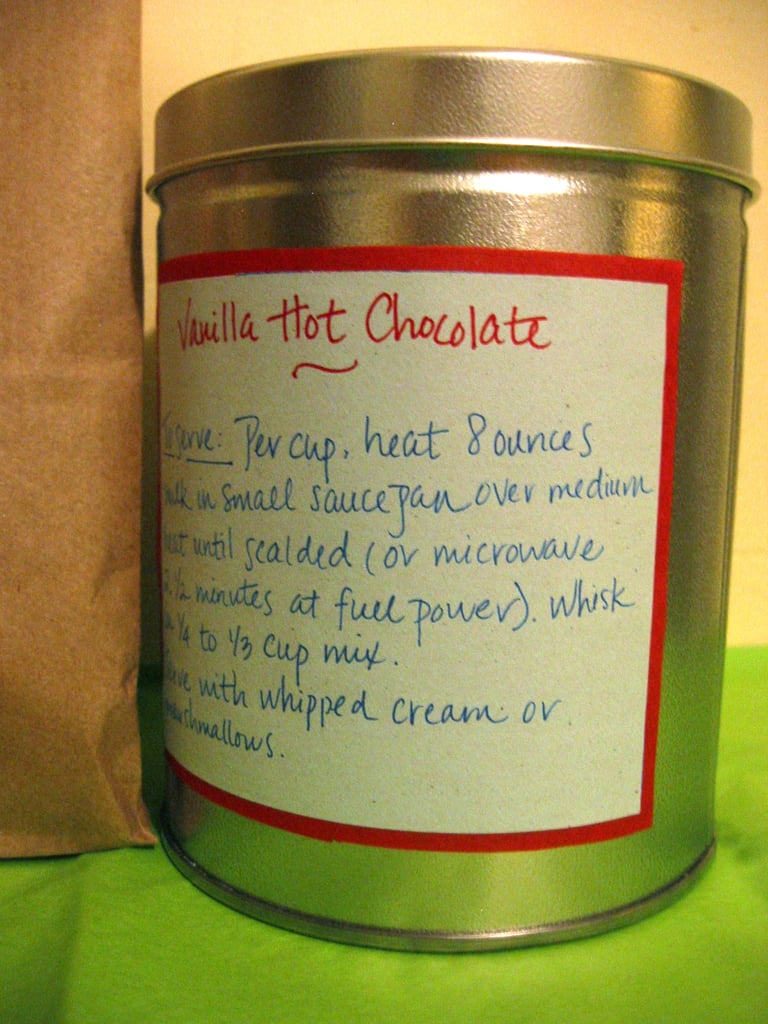 Vanilla Hot Chocolate
To serve: Per cup, heat 8 ounces
milk in small saucepan over medium
heat until scalded (or microwave
1/2 minutes at full power). Whisk
in 1/4 to 1/3 cup mix.
Serve with whipped cream or
marshmallows.